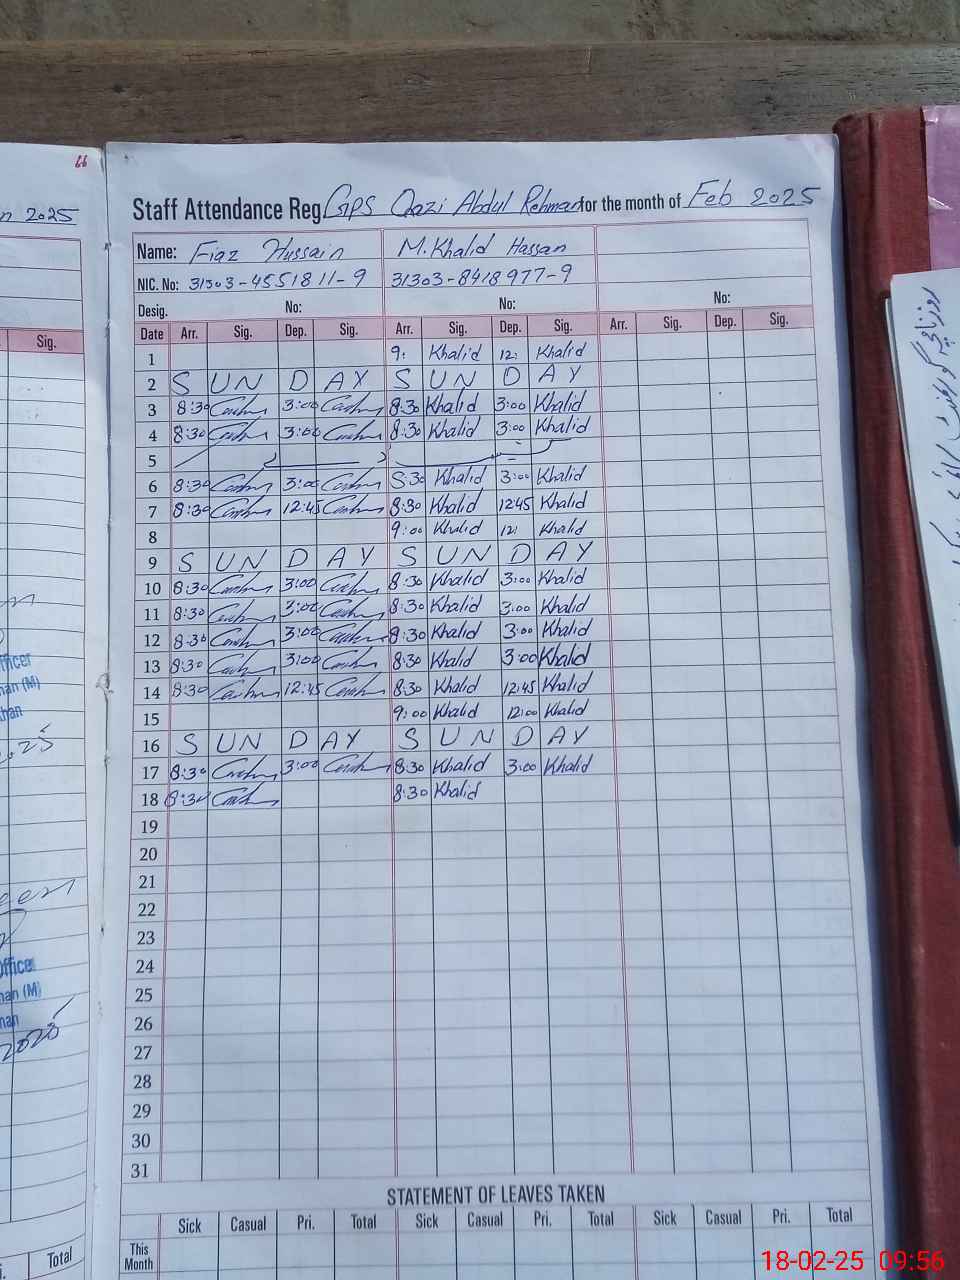 66
2025
Staff Attendance Reg. GPS Qazi Abdul Rehman for the month of Feb 2025
Name: Fiaz Hussain M. Khalid Hassan
NIC. No: 31303-4551811-9 31303-8418977-9
Desig. No: No: No:
Sig.
Date Arr. Sig. Dep. Sig. Arr. Sig. Dep. Sig. Arr. Sig. Dep. Sig.
1 9: Khalid 12: Khalid
2 S U N D A Y S U N D A Y
3 8:30 3:00 8:30 Khalid 3:00 Khalid
4 8:30 3:00 8:30 Khalid 3:00 Khalid
5
6 8:30 3:00 8:30 Khalid 3:00 Khalid
7 8:30 12:45 8:30 Khalid 1245 Khalid
8 9:00 Khalid 12: Khalid
9 S U N D A Y S U N D A Y
10 8:30 3:00 8:30 Khalid 3:00 Khalid
11 8:30 3:00 8:30 Khalid 3:00 Khalid
12 8:30 3:00 8:30 Khalid 3:00 Khalid
13 8:30 3:00 8:30 Khalid 3:00 Khalid
14 8:30 12:45 8:30 Khalid 12:45 Khalid
15 9:00 Khalid 12:00 Khalid
16 S U N D A Y S U N D A Y
17 8:30 3:00 8:30 Khalid 3:00 Khalid
18 8:30 8:30 Khalid
19
20
21
22
23
24
25
26
27
28
29
30
31
Office
2025
STATEMENT OF LEAVES TAKEN
Sick Casual Pri. Total Sick Casual Pri. Total Sick Casual Pri. Total
Total
This Month
18-02-25 09:56